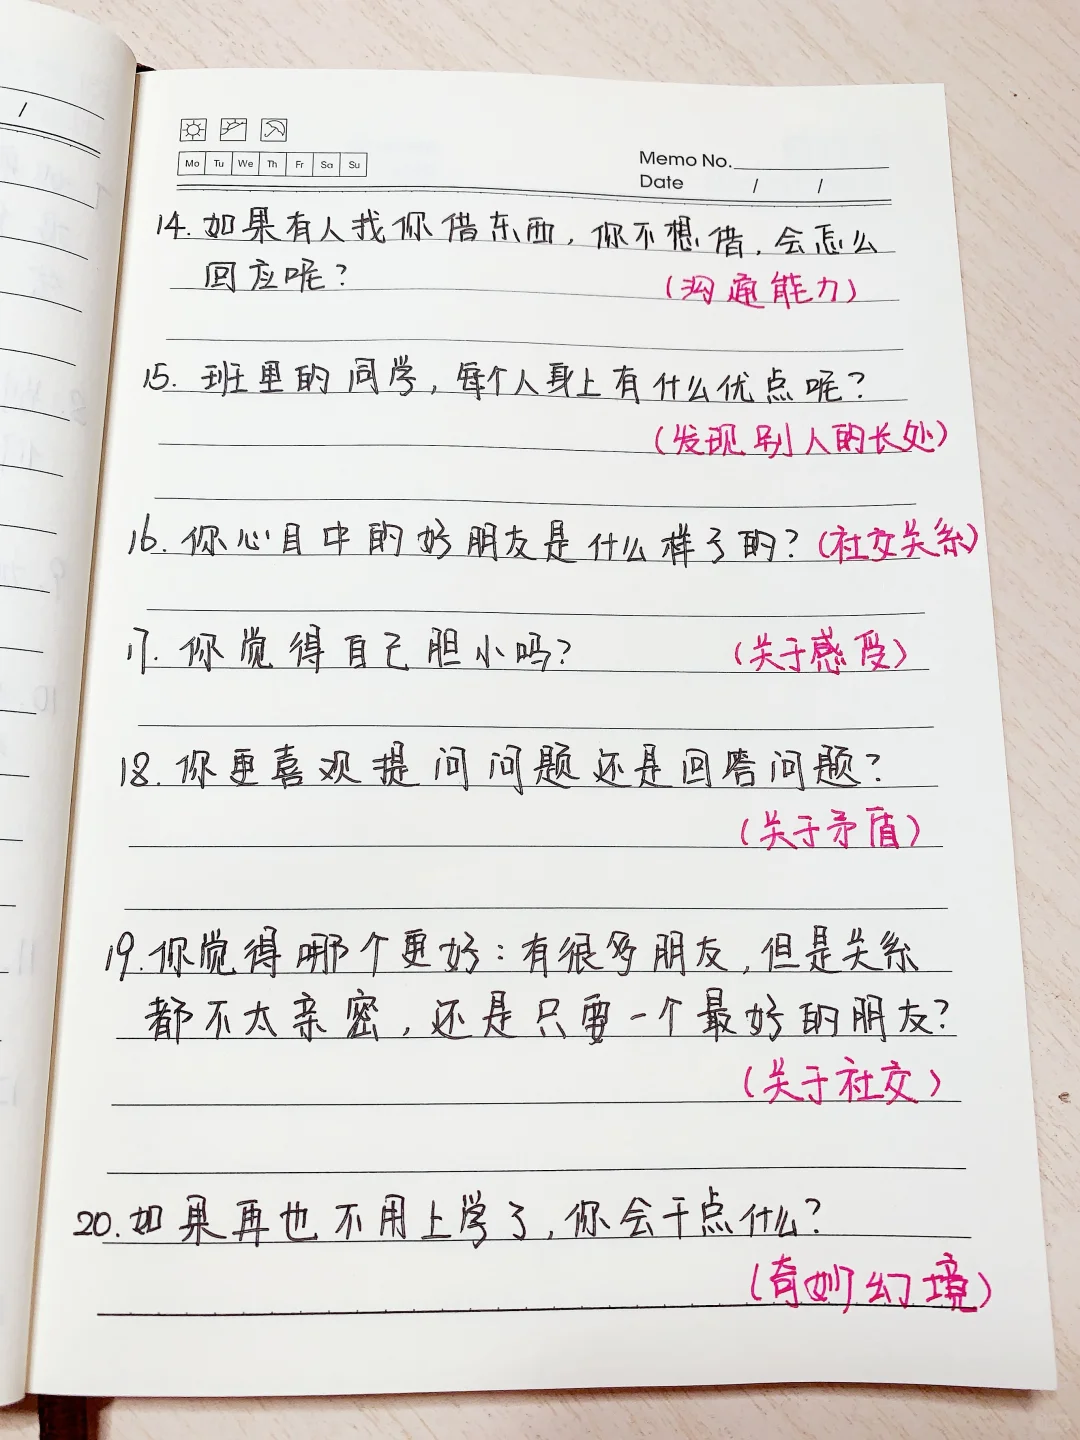 /
Mo Tu We Th Fr Sa Su
Memo No.
Date / /
14. 如果有人找你借东西，你不想借，会怎么
回应呢？
（沟通能力）
15. 班里的同学，每个人身上有什么优点呢？
（发现别人的长处）
16. 你心目中的好朋友是什么样子的？（社交关系）
17. 你觉得自己胆小吗？ （关于感受）
18. 你更喜欢提问问题还是回答问题？
（关于矛盾）
19. 你觉得哪个更好：有很多朋友，但是关系
都不太亲密，还是只要一个最好的朋友？
（关于社交）
20. 如果再也不用上学了，你会干点什么？
（奇妙幻境）